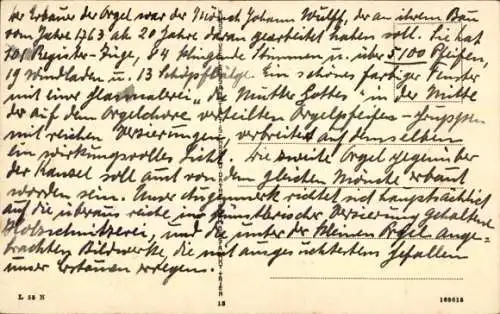 Der Erbauer der Orgel war der Mönch Johann Wulff, der an ihrem Bau
vom Jahre 1763 ab 20 Jahre daran gearbeitet haben soll. Sie hat
101 Register-Züge, 84 klingende Stimmen u. über 5100 Pfeifen,
19 Windladen u. 13 Schöpfbälge. Ein schönes farbiges Fenster
mit einer Glasmalerei "die Mutter Gottes" in der Mitte
der auf dem Orgelchore verteilten Orgelpfeifen-Gruppen
mit reichen Verzierungen, verbreitet auf denselben
ein wirkungsvolles Licht. Die zweite Orgel gegenüber
der Kanzel soll auch von dem gleichen Mönche erbaut
worden sein. Unser Augenmerk richtet sich hauptsächlich
auf die überaus reiche in künstlerischer Verzierung gehaltene
Holzschnitzerei, und die unter der kleinen Orgel ange-
brachten Bildwerke, die mit ausgesuchtestem Gefallen
unser Erstaunen erregen.
L 55 N
18